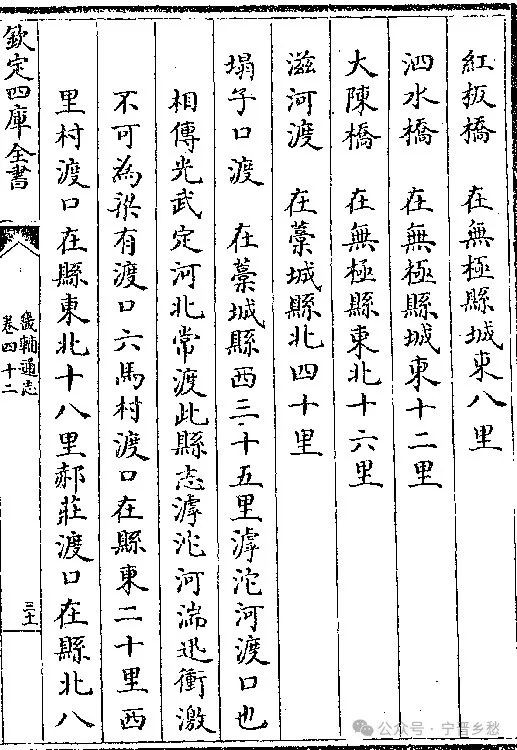 紅板橋　在無極縣城東八里
泗水橋　在無極縣城東十二里
大陳橋　在無極縣東北十六里
滋河渡　在藁城縣北四十里
塌子口渡　在藁城縣西三十五里滹沱河渡口也
相傳光武定河北常渡此縣志滹沱河湍迅衝激
不可為梁有渡口六馬村渡口在縣東二十里西
里村渡口在縣東北十八里郝莊渡口在縣北八
欽定四庫全書
畿輔通志
卷四十二
三十
公众号·宁晋乡愁